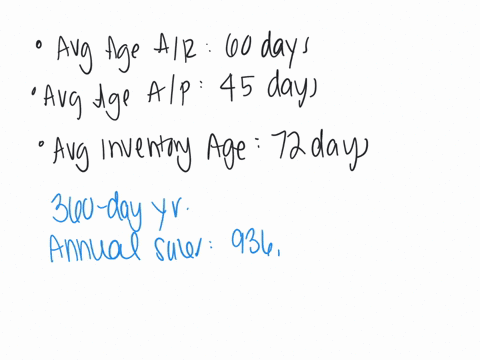 • Avg Age A/R: 60 days
• Avg Age A/P: 45 days
• Avg Inventory Age: 72 days
360-day yr.
Annual sales: 936,